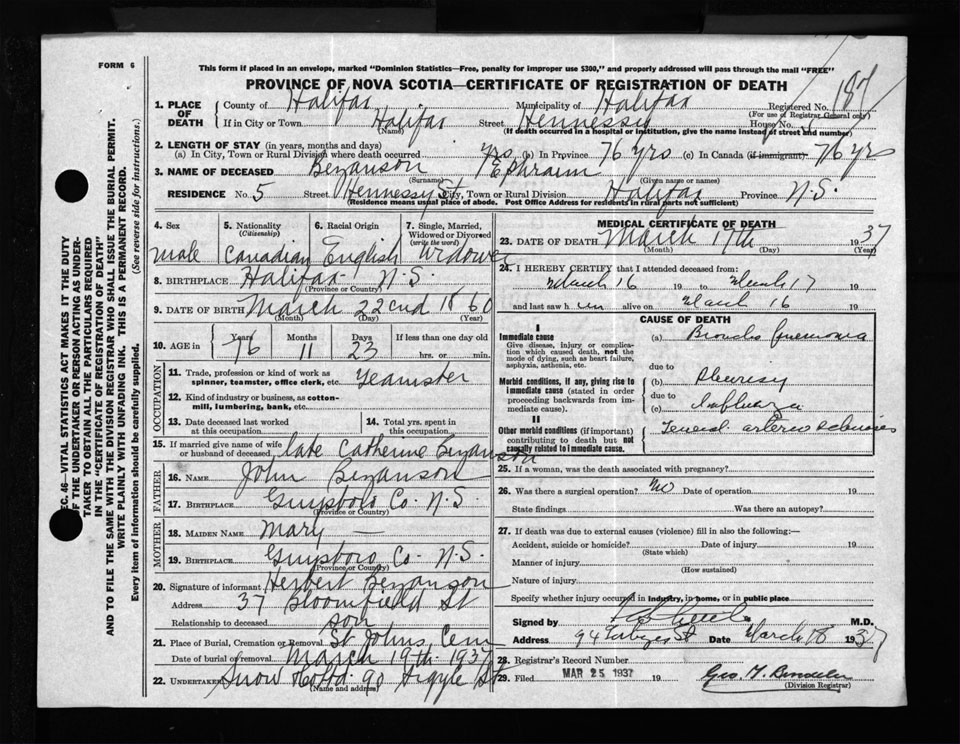 FORM 6
This form if placed in an envelope, marked "Dominion Statistics—Free, penalty for improper use $300," and properly addressed will pass through the mail "FREE"
PROVINCE OF NOVA SCOTIA—CERTIFICATE OF REGISTRATION OF DEATH
1. PLACE OF DEATH
County of Halifax Municipality of Halifax Registered No. 187
(For use of Registrar General only)
If in City or Town Halifax Street Hennessy House No. 5
(Name) (If death occurred in a hospital or institution, give the name instead of street and number)
2. LENGTH OF STAY (in years, months and days)
(a) In City, Town or Rural Division where death occurred yrs (b) In Province 76 yrs (c) In Canada (if immigrant) 76 yrs
3. NAME OF DECEASED Bezanson Ephraim
(Surname) (Given name or names)
RESIDENCE No. 5 Street Hennessy St City, Town or Rural Division Halifax Province N.S.
(Residence means usual place of abode. Post Office Address for residents in rural parts not sufficient)
4. Sex
male
5. Nationality
(Citizenship)
Canadian
6. Racial Origin
English
7. Single, Married, Widowed or Divorced
(write the word)
Widower
8. BIRTHPLACE Halifax N.S.
(Province or Country)
9. DATE OF BIRTH March 22nd 1860
(Month) (Day) (Year)
10. AGE in Years 76 Months 11 Days 23 If less than one day old
hrs. or min.
OCCUPATION
11. Trade, profession or kind of work as spinner, teamster, office clerk, etc. Teamster
12. Kind of industry or business, as cotton-mill, lumbering, bank, etc.
13. Date deceased last worked at this occupation
14. Total yrs. spent in this occupation
15. If married give name of wife or husband of deceased late Catherine Bezanson
FATHER
16. NAME John Bezanson
17. BIRTHPLACE Guysboro Co. N.S.
(Province or Country)
MOTHER
18. MAIDEN NAME Mary —
19. BIRTHPLACE Guysboro Co. N.S.
(Province or Country)
20. Signature of informant Herbert Bezanson
Address 37 Bloomfield St
Relationship to deceased son
21. Place of Burial, Cremation or Removal St Johns Cem
Date of burial or removal March 19th 1937
22. UNDERTAKER Snow Co Ltd. 90 Argyle St
(Name and address)
MEDICAL CERTIFICATE OF DEATH
23. DATE OF DEATH March 17th 1937
(Month) (Day) (Year)
24. I HEREBY CERTIFY that I attended deceased from:
March 16 19 to March 17 19
and last saw him alive on March 16 19
CAUSE OF DEATH
I
Immediate cause
Give disease, injury or complication which caused death, not the mode of dying, such as heart failure, asphyxia, asthenia, etc.
(a) Broncho Pneumonia
due to
Morbid conditions, if any, giving rise to immediate cause (stated in order proceeding backwards from immediate cause).
(b) Pleuresy
due to
(c) Influenza
II
Other morbid conditions (if important) contributing to death but not causally related to immediate cause.
General arterio sclerosis
25. If a woman, was the death associated with pregnancy?
26. Was there a surgical operation? no Date of operation 19
State findings Was there an autopsy?
27. If death was due to external causes (violence) fill in also the following:—
Accident, suicide or homicide? Date of injury 19
(State which)
Manner of injury
(How sustained)
Nature of injury
Specify whether injury occurred in industry, in home, or in public place
Signed by M.D.
Address 94 St Date March 18 1937
28. Registrar's Record Number
29. Filed MAR 25 1937 19 Geo. T.
(Division Registrar)
SEC. 46—VITAL STATISTICS ACT MAKES IT THE DUTY
OF THE UNDERTAKER OR PERSON ACTING AS UNDER-
TAKER TO OBTAIN ALL THE PARTICULARS REQUIRED
IN THE "CERTIFICATE OF REGISTRATION OF DEATH"
AND TO FILE THE SAME WITH THE DIVISION REGISTRAR WHO SHALL ISSUE THE BURIAL PERMIT.
WRITE PLAINLY WITH UNFADING INK. THIS IS A PERMANENT RECORD.
Every item of information should be carefully supplied. (See reverse side for instructions.)